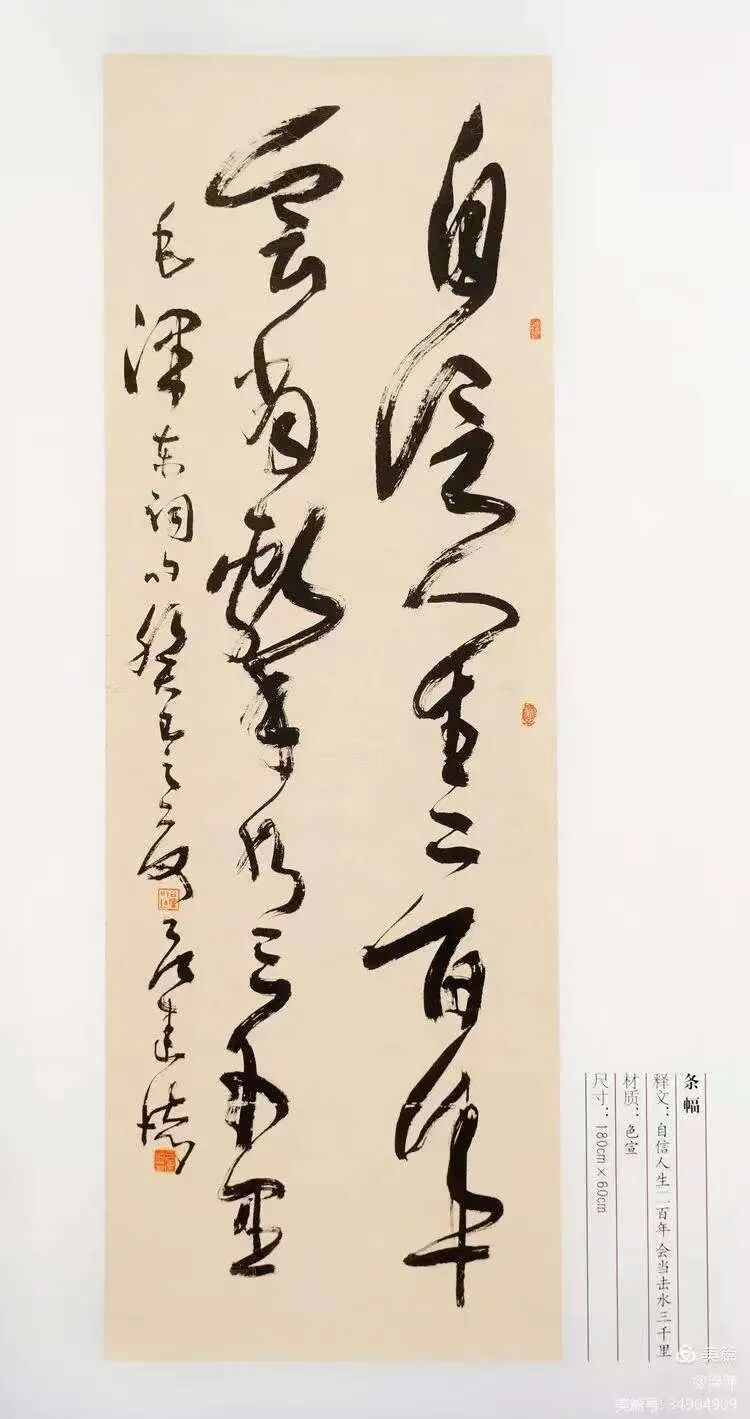 自信人生二百年
會當擊水三千里
毛澤东词句癸卯之夏
条幅
释文：自信人生二百年 会当击水三千里
材质：色宣
尺寸：180cm×60cm
美篇
美篇号: 34904909